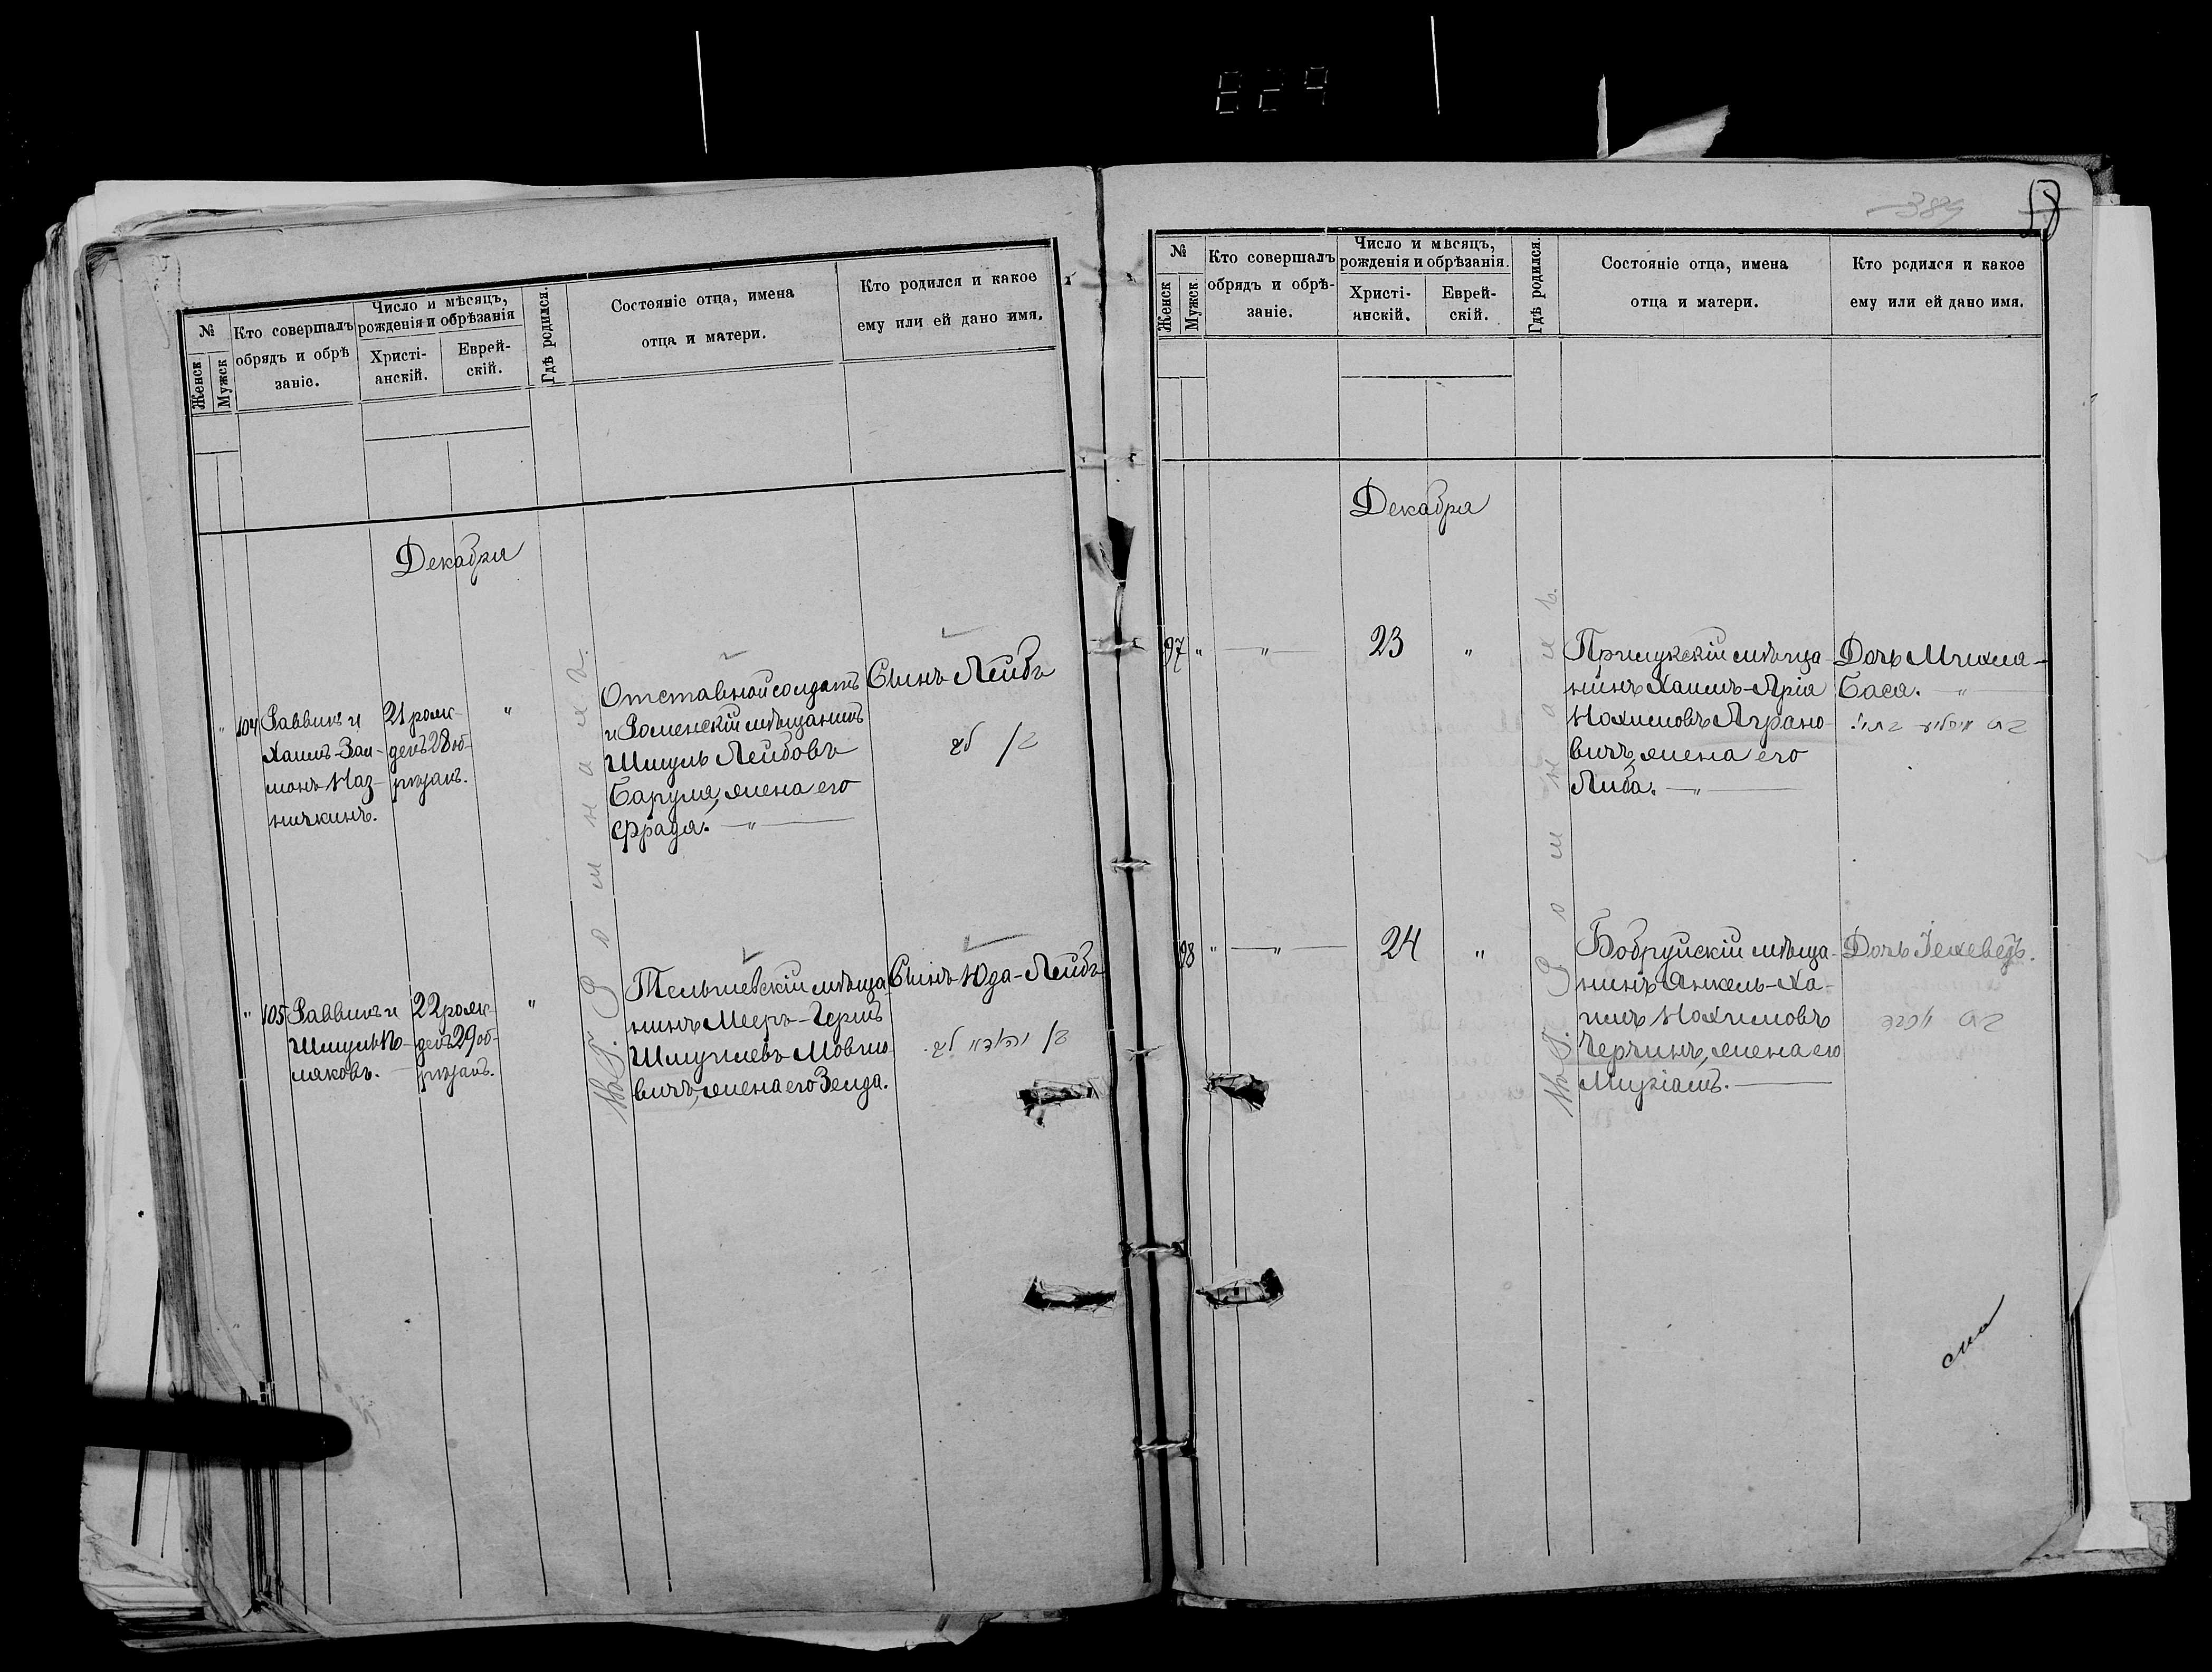 829
№
Женск
Мужск
Кто совершалъ
обрядъ и обрѣ
заніе.
Число и мѣсяцъ,
рожденія и обрѣзанія
Христі-
анскій.
Еврей-
скій.
Гдѣ родился.
Состояніе отца, имена
отца и матери.
Кто родился и какое
ему или ей дано имя.
Декабря
" 104
Раввинъ и
Хаимъ-Зал-
монъ Наз-
ничкинъ.
21 рож-
денъ 28 об-
рѣзанъ.
"
Отставной солдатъ
и Роменскій мѣщанинъ
Шмуль Лейбовъ
Баруля, жена его
Фрада. — " —
Сынъ Лейбъ
בן לייב
" 105
Раввинъ и
Шмуль По-
ляковъ.
22 рож-
денъ 29 об-
рѣзанъ.
"
Тельшевскій мѣща-
нинъ Мееръ-Гершъ
Шмуилевъ Мовшо-
вичъ, жена его Зелда.
Сынъ Юда-Лейбъ
בן יהודא ליב
Въ Г. Р о м н а х ъ.
389
58
№
Женск
Мужск.
Кто совершалъ
обрядъ и обрѣ-
заніе.
Число и мѣсяцъ,
рожденія и обрѣзанія.
Христі-
анскій.
Еврей-
скій.
Гдѣ родился.
Состояніе отца, имена
отца и матери.
Кто родился и какое
ему или ей дано имя.
Декабря
97 " — " — 23 "
Прилукскій мѣща-
нинъ Хаимъ-Арія
Нохимовъ Аграно-
вичъ, жена его
Либа. — " —
Дочь Михля-
Бася. — " —
98 " — " — 24 "
Бобруйскій мѣща-
нинъ Янкель-Ха-
имъ Нохимовъ
Черчинъ, жена его
Миріамъ. —
Дочь Іехеведъ.
בת יוכבד
Въ Г. Р о м н а х ъ.